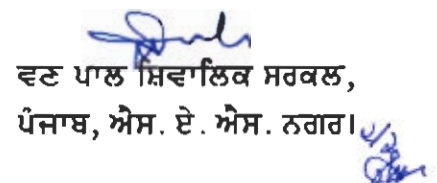 ਵਣ ਪਾਲ ਸ਼ਿਵਾਲਿਕ ਸਰਕਲ,
ਪੰਜਾਬ, ਐਸ. ਏ . ਐਸ. ਨਗਰ।